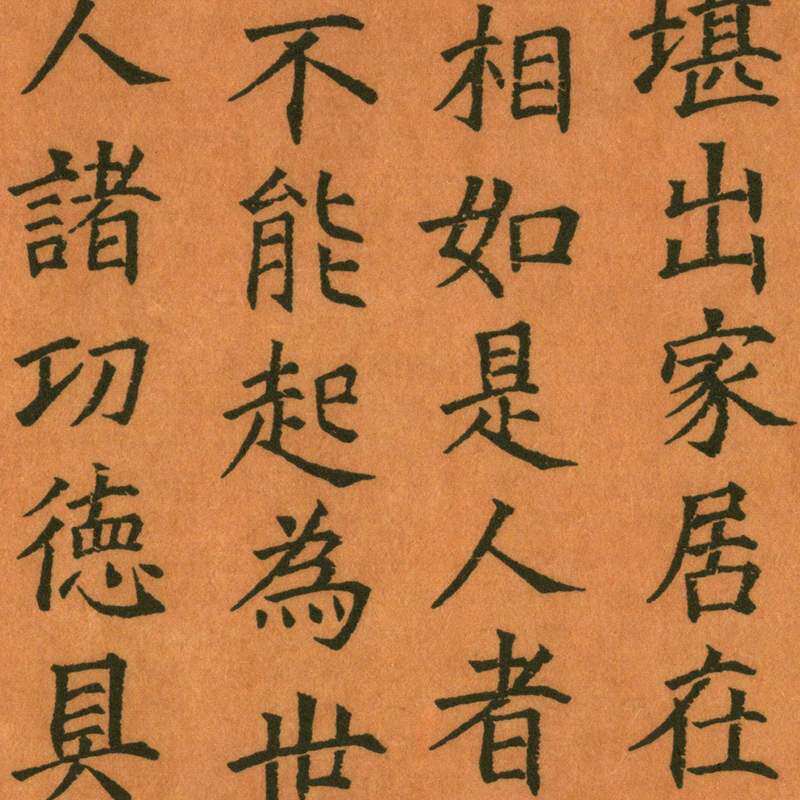 堪出家居在
相如是人者
不能起為世
人諸功德具